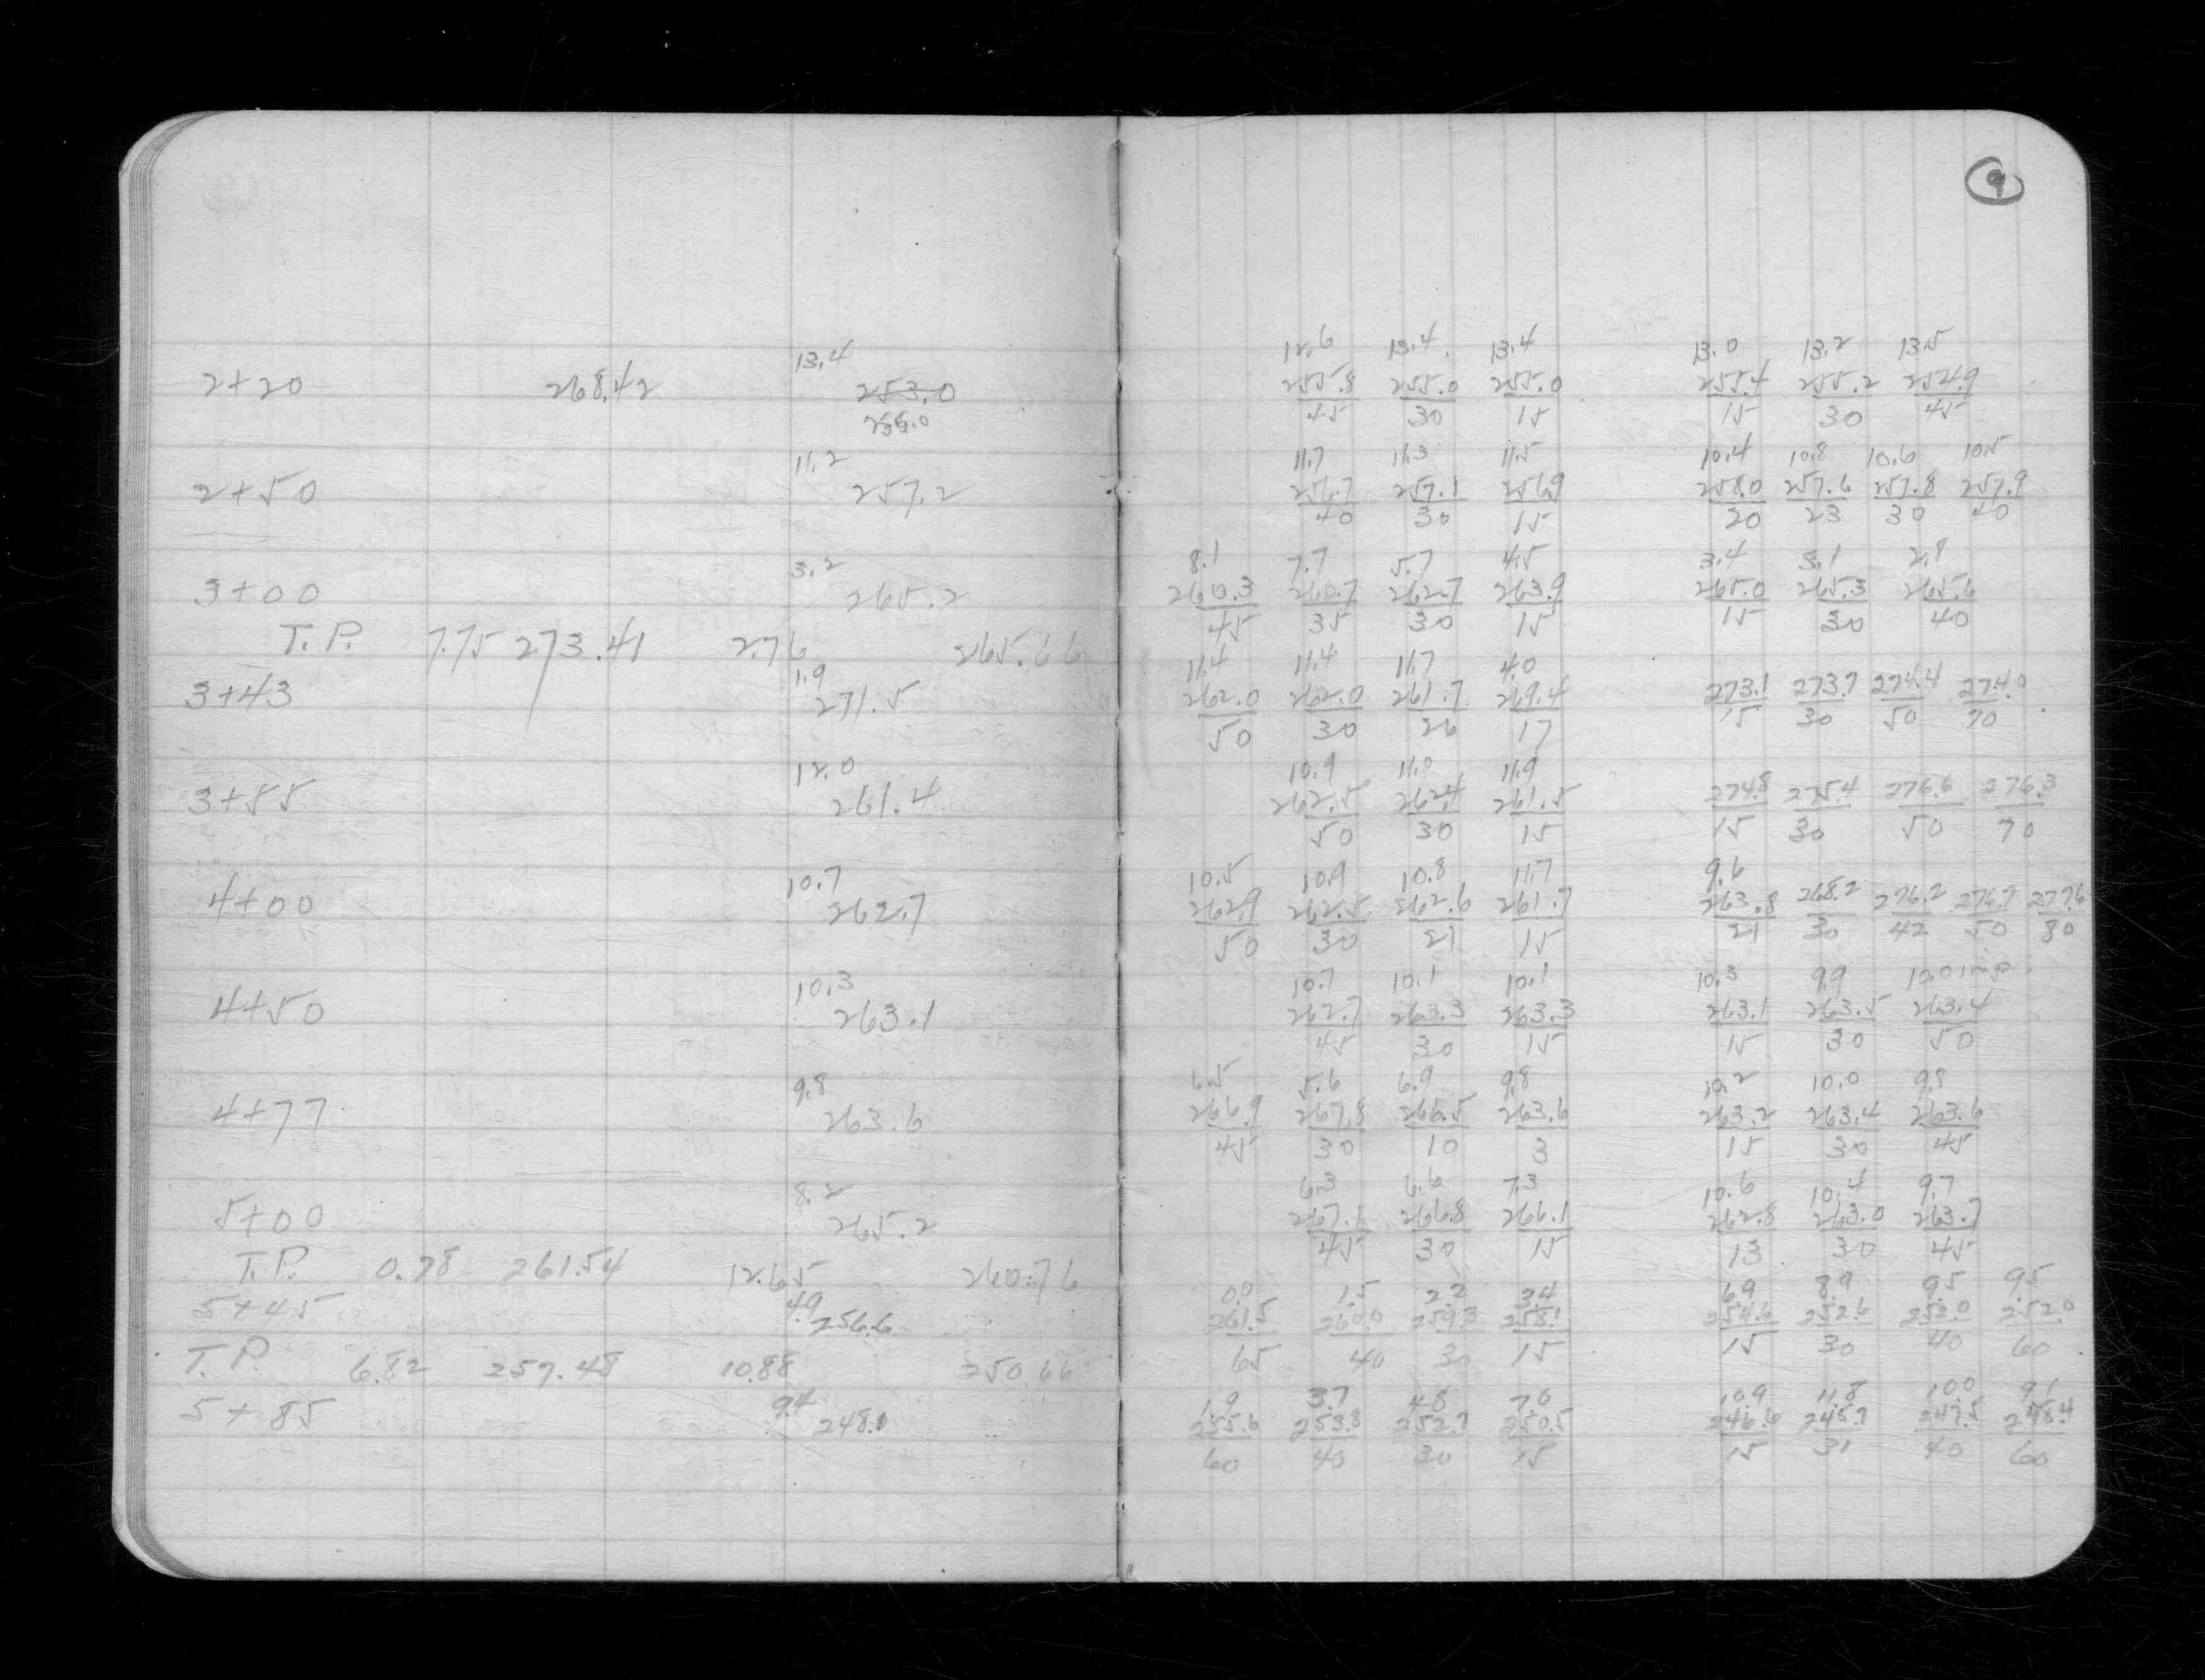 9
13.4 12.6 13.4 13.4 13.0 13.2 13.5
2+20 268.42 253.0 255.8 255.0 255.0 255.4 255.2 254.9
255.0 45 30 15 15 30 45
11.2 11.7 11.3 11.5 10.4 10.8 10.6 10.5
2+50 257.2 256.7 257.1 256.9 258.0 257.6 257.8 257.9
40 30 15 20 23 30 40
3.2 8.1 7.7 5.7 4.5 3.4 3.1 2.8
3+00 265.2 260.3 260.7 262.7 263.9 265.0 265.3 265.6
45 35 30 15 15 30 40
T.P. 7.75 273.41 2.76 265.66
1.9 11.4 11.4 11.7 4.0
3+43 271.5 262.0 262.0 261.7 269.4 273.1 273.7 274.4 274.0
50 30 26 17 15 30 50 70
12.0 10.9 11.0 11.9
3+55 261.4 262.5 262.4 261.5 274.8 275.4 276.6 276.3
50 30 15 15 30 50 70
10.7 10.5 10.9 10.8 11.7 9.6
4+00 262.7 262.9 262.5 262.6 261.7 263.8 268.2 276.2 276.7 277.6
50 30 21 15 21 30 42 50 80
10.3 10.7 10.1 10.1 10.3 9.9 10.0 imp
4+50 263.1 262.7 263.3 263.3 263.1 263.5 263.4
45 30 15 15 30 50
9.8 6.5 5.6 6.9 9.8 10.2 10.0 9.8
4+77 263.6 266.9 267.8 266.5 263.6 263.2 263.4 263.6
45 30 10 3 15 30 45
8.2 6.3 6.6 7.3 10.6 10.4 9.7
5+00 265.2 267.1 266.8 266.1 262.8 263.0 263.7
45 30 15 13 30 45
T.P. 0.78 261.54 12.65 260.76
4.9 0.0 1.5 2.2 3.4 6.9 8.9 9.5 9.5
5+45 256.6 261.5 260.0 259.3 258.1 254.6 252.6 252.0 252.0
65 40 30 15 15 30 40 60
T.P. 6.82 257.48 10.88 250.66
9.4 1.9 3.7 4.8 7.0 10.9 11.8 10.0 9.1
5+85 248.1 255.6 253.8 252.7 250.5 246.6 245.7 247.5 248.4
60 40 30 15 15 31 40 60